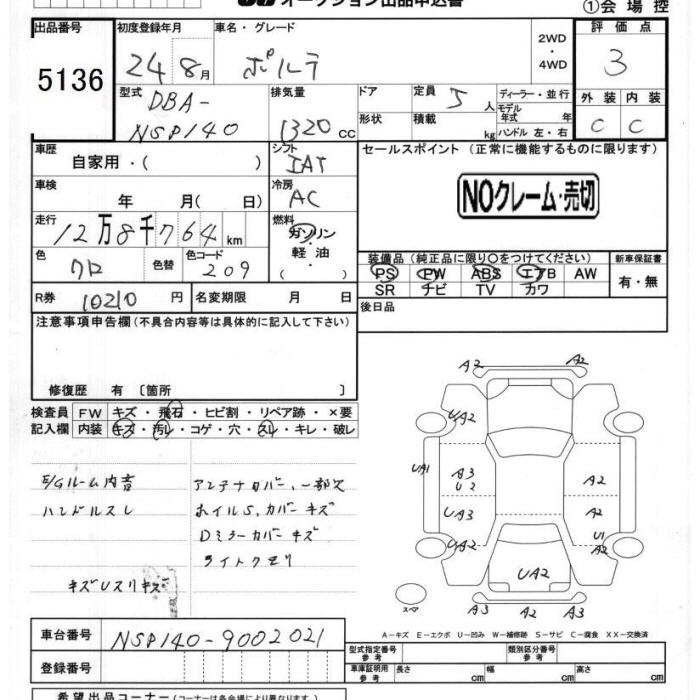 オークション出品申込書
①会場控
出品番号 初度登録年月 車名・グレード 2WD・4WD 評価点
5136
24年8月 ポルテ 3
型式 排気量 ドア 定員 5人 ディーラー・並行 外装 内装
DBA-
NSP140 1320cc 形状 積載 kg モデル年式 年 ハンドル 左・右 C C
車歴 シフト セールスポイント (正常に機能するものに限ります)
自家用・( ) IAT
車検 年 月(日) 冷房 AC
NOクレーム・売切
走行 12万8千764km 燃料 ガソリン・軽油・( )
色 クロ 色替 色コード 209
装備品(純正品に限り○をつけてください) 新車保証書
PS PW ABS エアB AW 有・無
SR ナビ TV カワ
R券 10210円 名変期限 月 日 後日品
注意事項申告欄(不具合内容等は具体的に記入して下さい)
修復歴 有 [箇所 ]
検査員 FW キズ・飛石・ヒビ割・リペア跡・×要
記入欄 内装 キズ・汚レ・コゲ・穴・スレ・キレ・破レ
E/Gルーム内音 アンテナカバー、一部欠
ハンドルスレ ホイルS,カバーキズ
Dミラーカバーキズ
ライトクモリ
キズUスリキズ
A2 A2
UA2
UA1 A3 U2 A2
UA3
UA2 U1 A2
UA2
スペア A3 A3 A2
A-キズ E-エクボ U-凹み W-補修跡 S-サビ C-腐食 XX-交換済
車台番号 NSP140-9002021
型式指定番号 参考 類別区分番号 参考
登録番号 車庫証明用 参考 長さ cm 幅 cm 高さ cm
希望出品コーナー(コーナーは各会場により異なります)